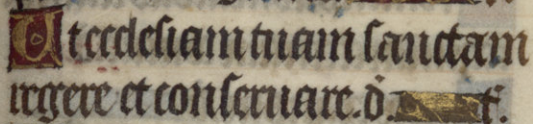 Ut ecclesiam tuam sanctam
regere et conseruare. d̄. t̄.